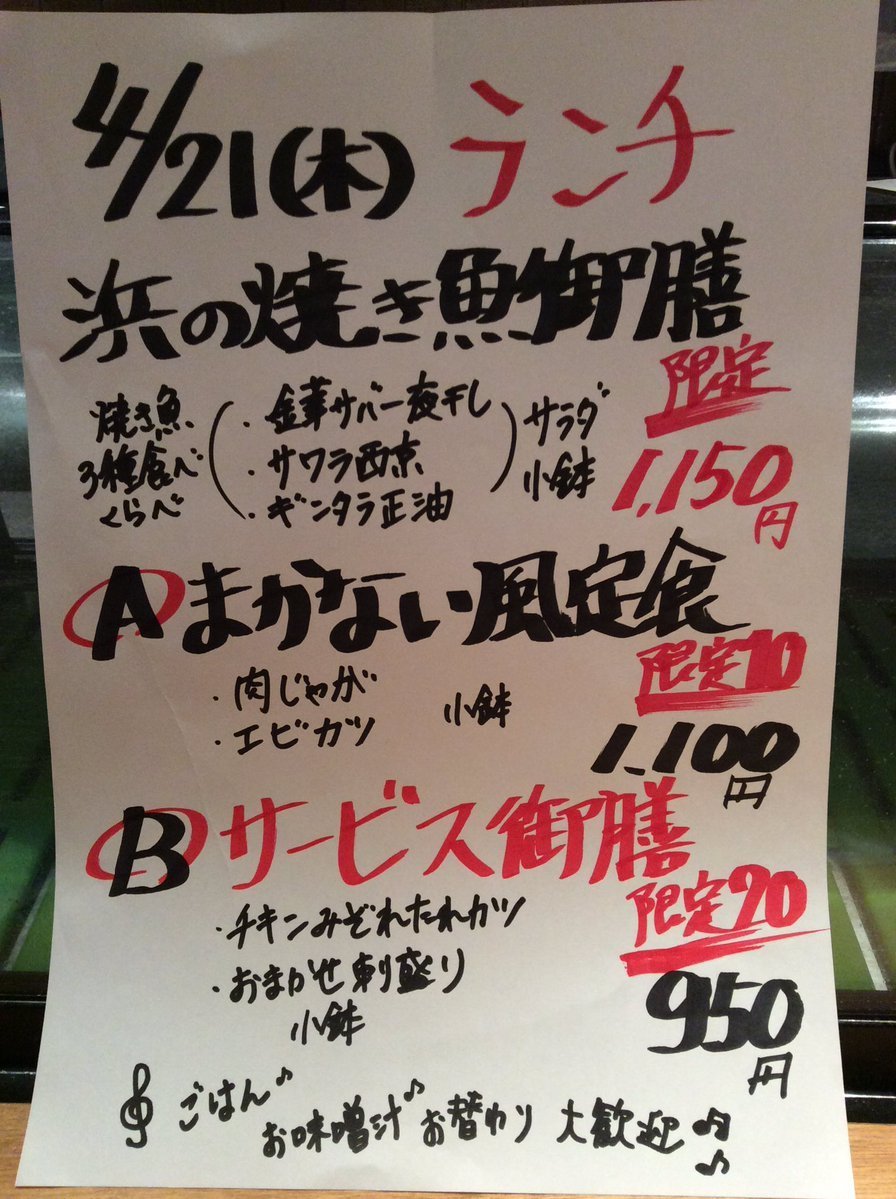 4/21(木) ランチ
浜の焼き魚御膳
限定
焼き魚
3種食べ
くらべ
・金華サバ一夜干し
・サワラ西京
・ギンタラ正油
サラダ
小鉢
1,150円
A まかない風定食
限定10
・肉じゃが
・エビカツ
小鉢
1,100円
B サービス御膳
限定20
・チキンみぞれたれカツ
・おまかせ刺盛り
小鉢
950円
ごはん♪ お味噌汁♪ お替わり 大歓迎♫♪